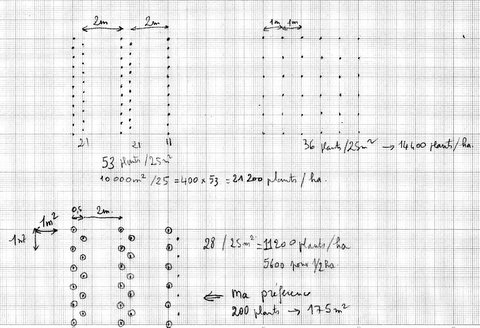 2m 2m
1m 1m
21 21 11
53 plants / 25m²
10 000 m² / 25 = 400 x 53 = 21 200 plants / ha.
36 plants / 25m² → 14 400 plants / ha.
0,5 2m
1m²
1m²
28 / 25m² = 11 200 plants / ha
5600 pour 1/2 ha
← ma préférence
200 plants → 175 m²